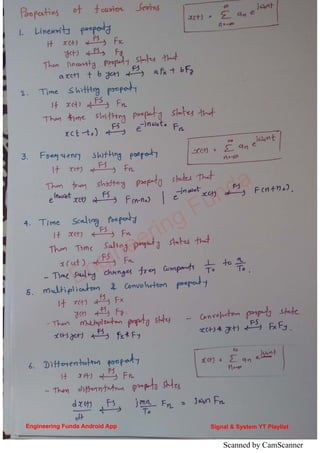 Properties of Fourier Series
x(t) = ∞Σn=-∞ an e^jωnt
1. Linearity property
If x(t) ←FS→ Fx
y(t) ←FS→ Fy
Then linearity property states that
ax(t) + b y(t) ←FS→ aFx + bFy
2. Time Shifting property
If x(t) ←FS→ Fn
Then time shifting property states that
x(t-to) ←FS→ e^-jnωot Fn
x(t) = ∞Σn=-∞ an e^jωnt
3. Frequency Shifting property
If x(t) ←FS→ Fn
Then frqn shifting property states that
e^jnoωot x(t) ←FS→ F(n-no) | e^-jnωot x(t) ←FS→ F(n+no).
4. Time Scaling Property
If x(t) ←FS→ Fn
Then Time Saling property states that
x(at) ←FS→ Fn
- Time Scaling changes freqn Components 1/To to a/To
5. multiplication & Convolution property
If x(t) ←FS→ Fx
y(t) ←FS→ Fy
- Then multiplication property states - Convolution property state
x(t)·y(t) ←FS→ Fx * Fy x(t) * y(t) ←FS→ Fx Fy.
6. Differentiation property
x(t) = ∞Σn=-∞ an e^jωnt
If x(t) ←FS→ Fn
- Then differentiation property states
dx(t)/dt ←FS→ jπn/To Fn = jωn Fn
Engineering Funda
Engineering Funda Android App Signal & System YT Playlist
Scanned by CamScanner